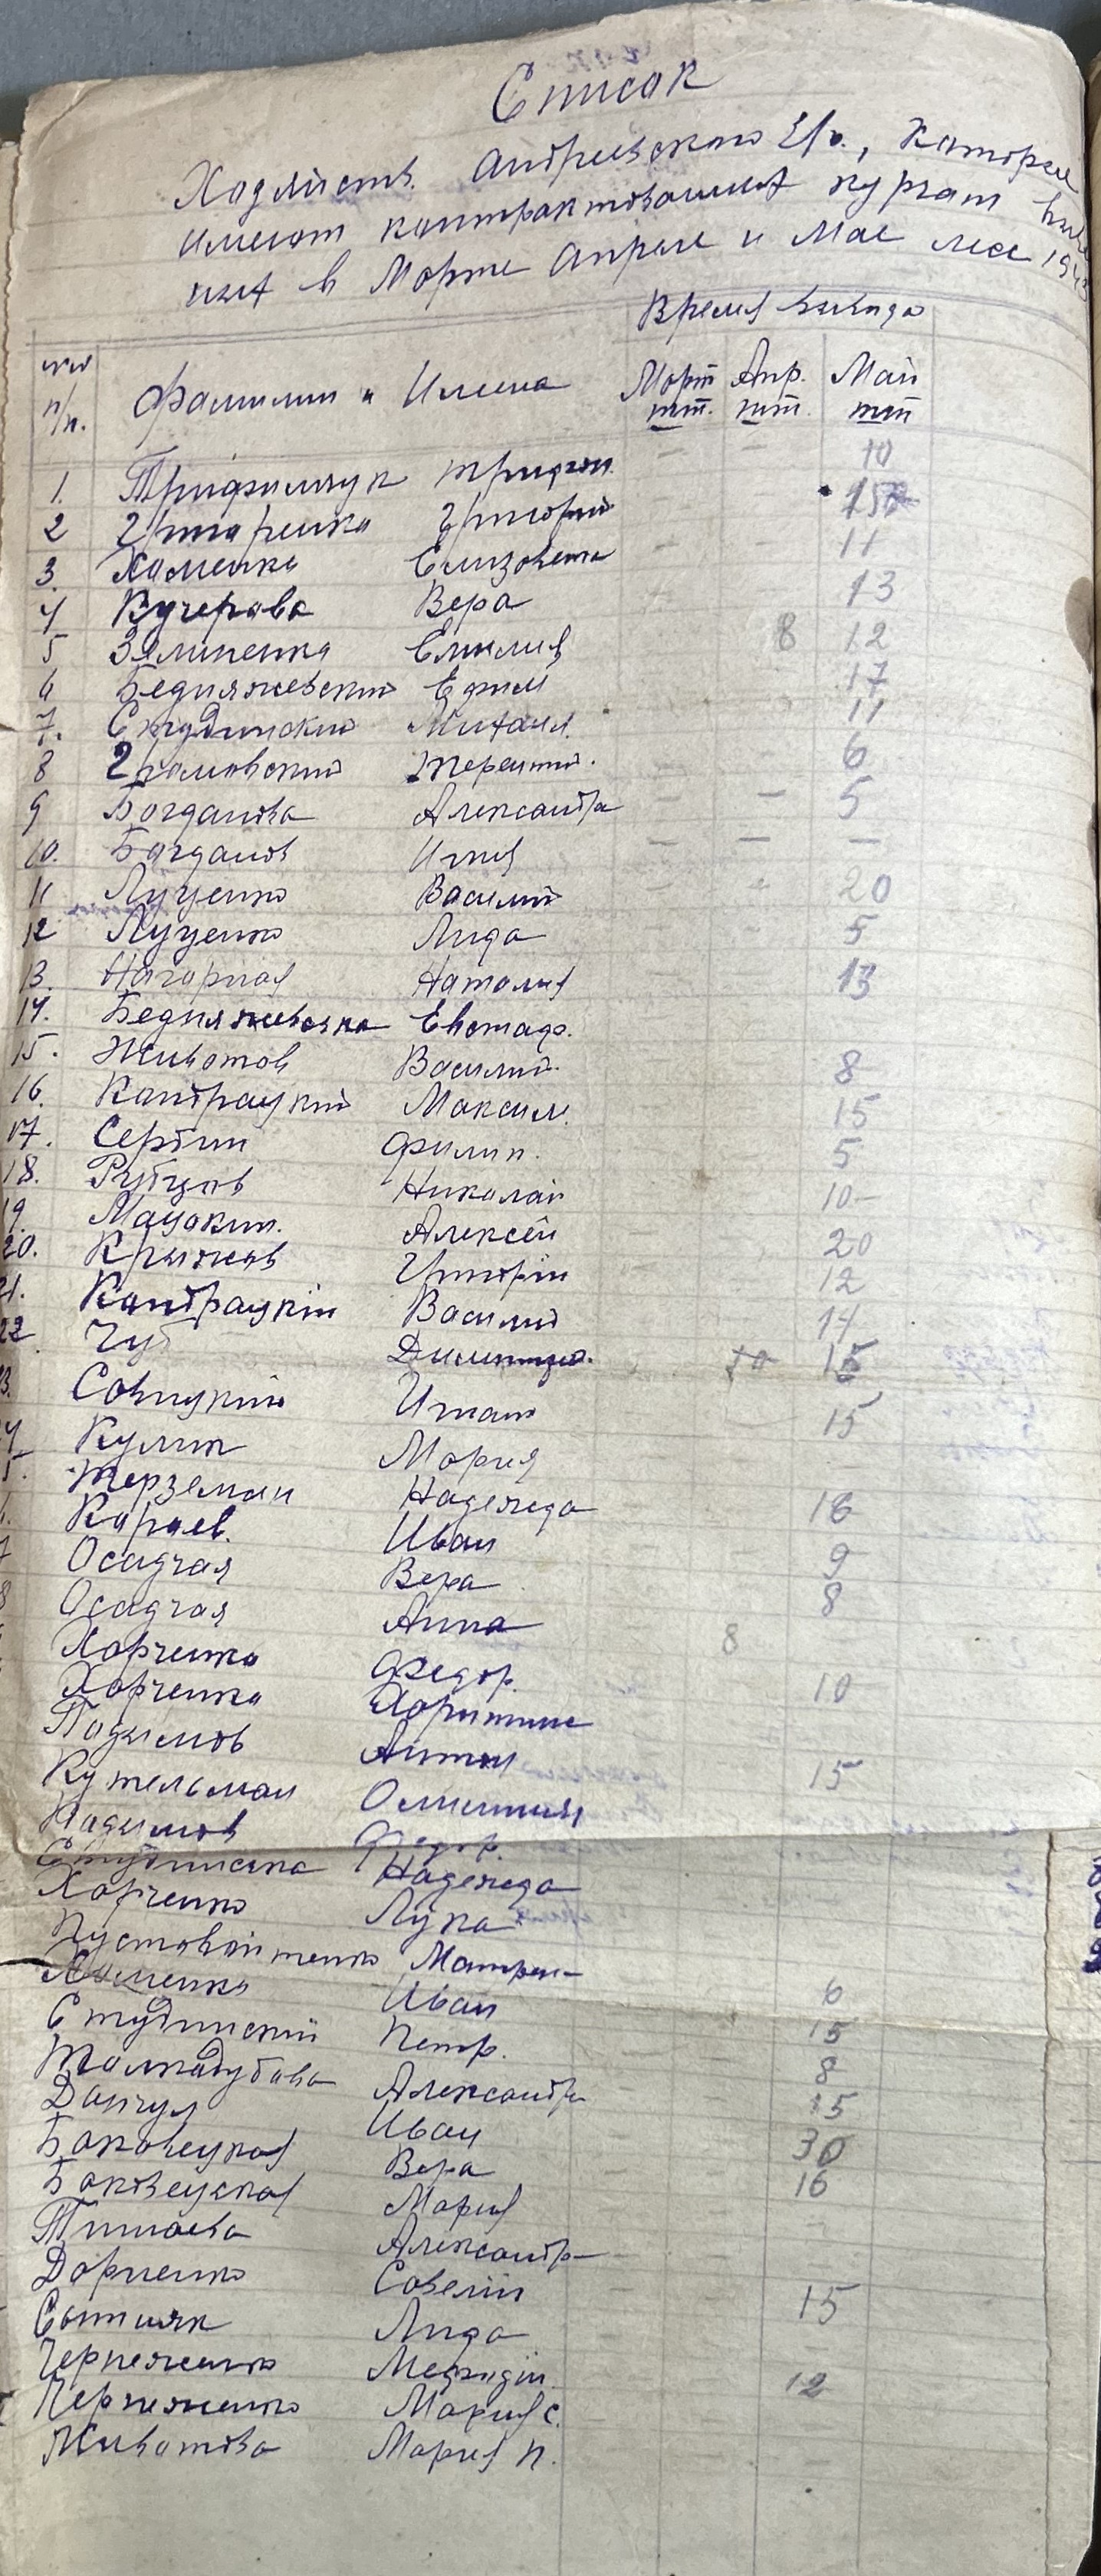 Список
Хозяйств. Андреевского З/о., Которые
имеют контрактованных курчат
в Марте Апреле и Мае мсе
Время вывода
№№ п/п. Фамилии и Имена Март шт. Апр. шт. Май шт
1. Трифимчук Трифон. - - 10
2 Григоренко Григорий 15
3. Хоменко Елизовета - - 11
4 Кучерова Вера - - 13
5 Зелиненко Емилия 8 12
6 Бедняжевский Ефим 17
7. Студинский Михаил. 11
8 Громовский Терентий. 6
9 Богданова Александра - - 5
10. Богданов Игнат - - -
11 Луценко Василий 20
12 Луценко Лида 5
13. Нагорная Наталия 13
14. Бедняжевска Евстаф.
15. Животов Василий. 8
16. Кондрацкий Максим. 15
17. Сербин Филип. 5
18. Рубцов Николай 10-
19. Мацокин. Алексей 20
20. Крыжов Григорий 12
21. Кондрацкий Василий 14
22. Чуб 10 15
Совицкий Игнат 15
Кулик Мария
Терземан Надежда 16
Караев. Иван 9
Осадчая Вера 8
Осадчая Анна 8
Харченко Федор. 10
Харченка Харитине
Надымов Антон 15
Кутельмах
Надымов Федор.
Студинска Надежда
Харченко Лука
Пустовойтенко Матрен-
Хоменко Иван 6
Студинский Петр. 15
Толкодубова Александра 8
Данчул Иван 15
Баковецкая Вера 30
Баковецкая Мария 16
Тинаева Александр-
Дорненко Совелий 15
Сотник Лида
Черпеженко Мефодий. 12
Черпеженко Мария С.
Животова Мария П.